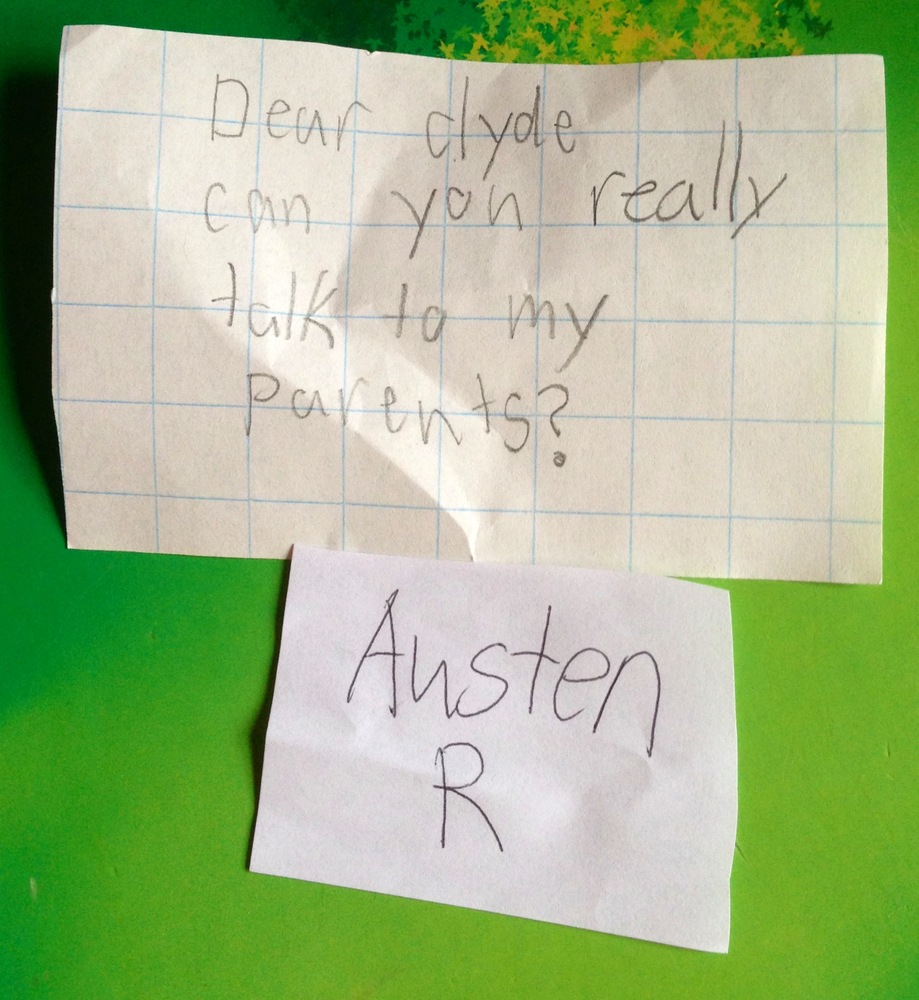 Dear clyde
can you really
talk to my
parents?
Austen
R